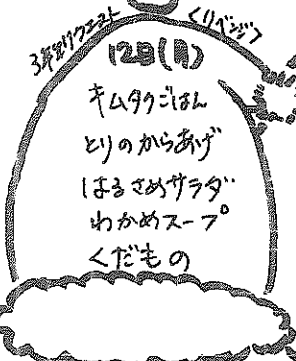 3年生リクエスト
くリベンジ〉
12日(月)
キムタクごはん
とりのからあげ
はるさめサラダ
わかめスープ
くだもの